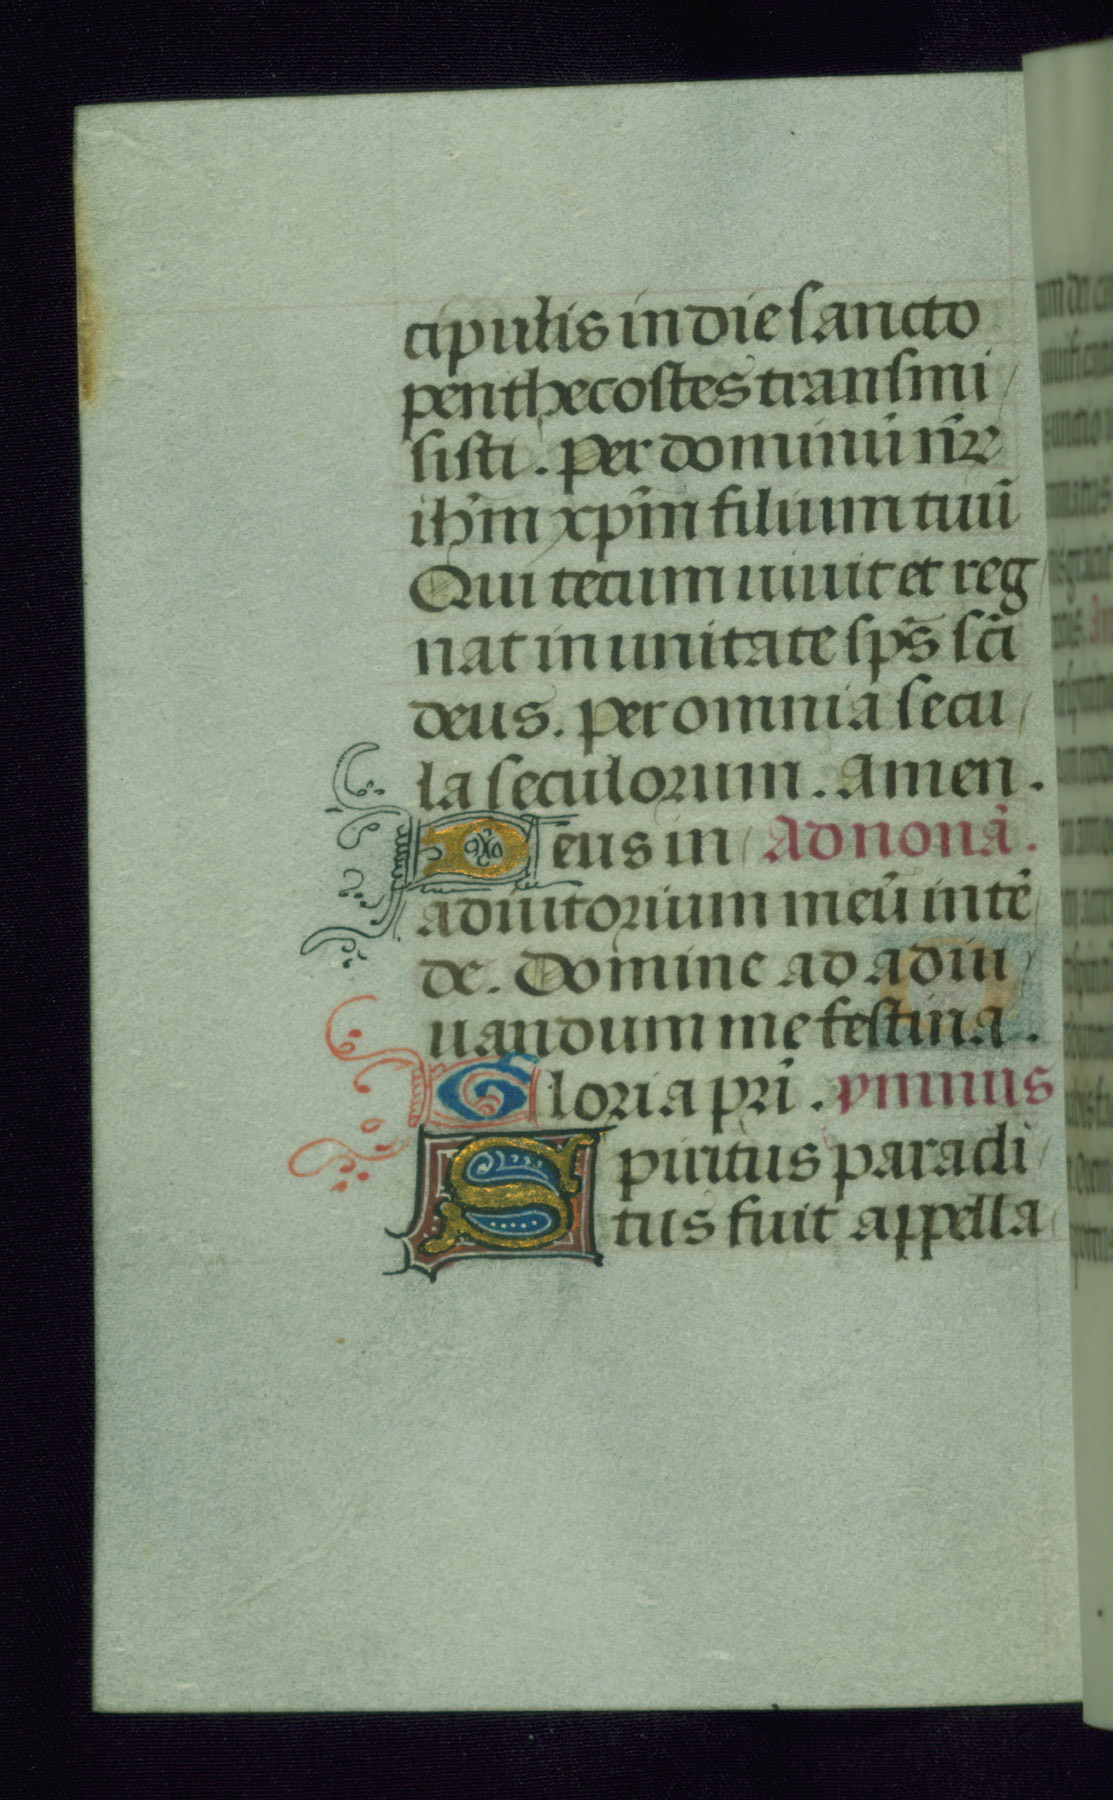 cipulis in die sancto
penthecostes transmi
sisti. Per dominū nr̄ꝫ
ih̄m xp̄m filium tuū
Qui tecum uiuit et reg
nat in unitate sp̄s sc̄i
deus. per omnia secu
la seculorum. Amen.
Deus in Ad nonā.
adiutorium meū intē
de. Domine ad adiu
uandum me festina.
Gloria pr̄i. ymnus
Spiritus paracli
tus fuit appella